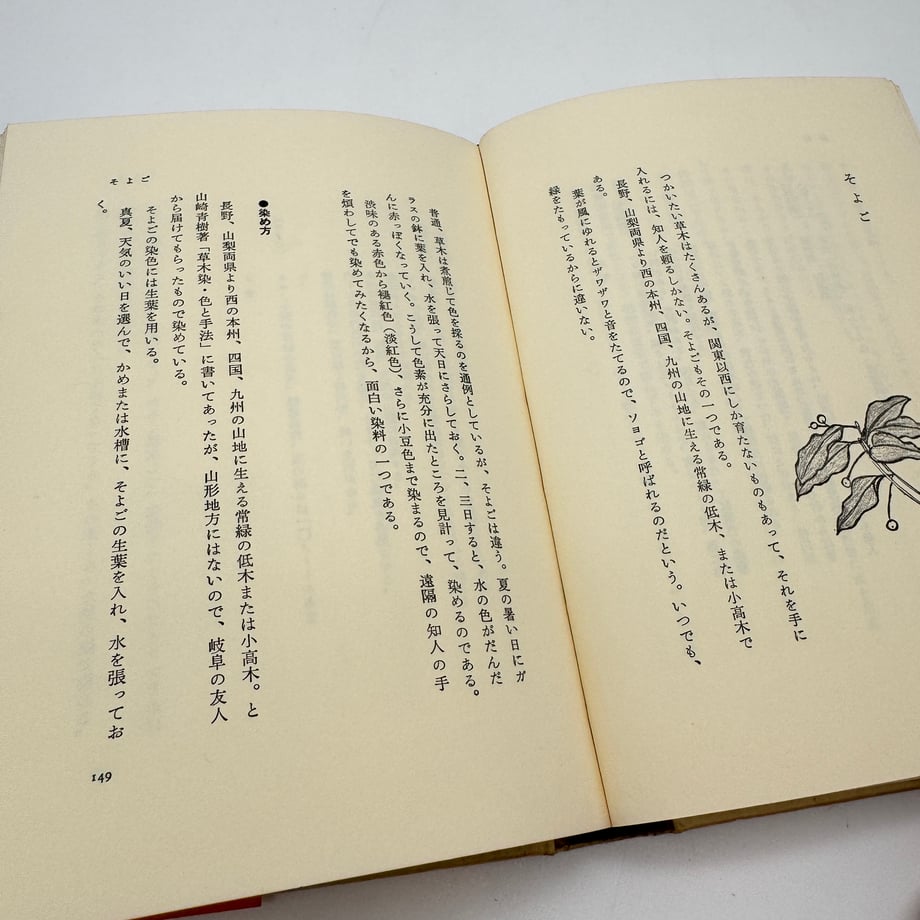 そよご
つかいたい草木はたくさんあるが、関東以西にしか育たないものもあって、それを手に
入れるには、知人を頼るしかない。そよごもその一つである。
長野、山梨両県より西の本州、四国、九州の山地に生える常緑の低木、または小高木で
ある。
葉が風にゆれるとザワザワと音をたてるので、ソヨゴと呼ばれるのだという。いつでも、
緑をたもっているからに違いない。
普通、草木は煮煎じて色を採るのを通例としているが、そよごは違う。夏の暑い日にガ
ラスの鉢に葉を入れ、水を張って天日にさらしておく。二、三日すると、水の色がだんだ
んに赤っぽくなっていく。こうして色素が充分に出たところを見計って、染めるのである。
渋味のある赤色から褪紅色（淡紅色）、さらに小豆色まで染まるので、遠隔の知人の手
を煩わしてでも染めてみたくなるから、面白い染料の一つである。
●染め方
長野、山梨両県より西の本州、四国、九州の山地に生える常緑の低木または小高木。と
山崎青樹著「草木染・色と手法」に書いてあったが、山形地方にはないので、岐阜の友人
から届けてもらったもので染めている。
そよごの染色には生葉を用いる。
真夏、天気のいい日を選んで、かめまたは水槽に、そよごの生葉を入れ、水を張ってお
く。
そよご
149